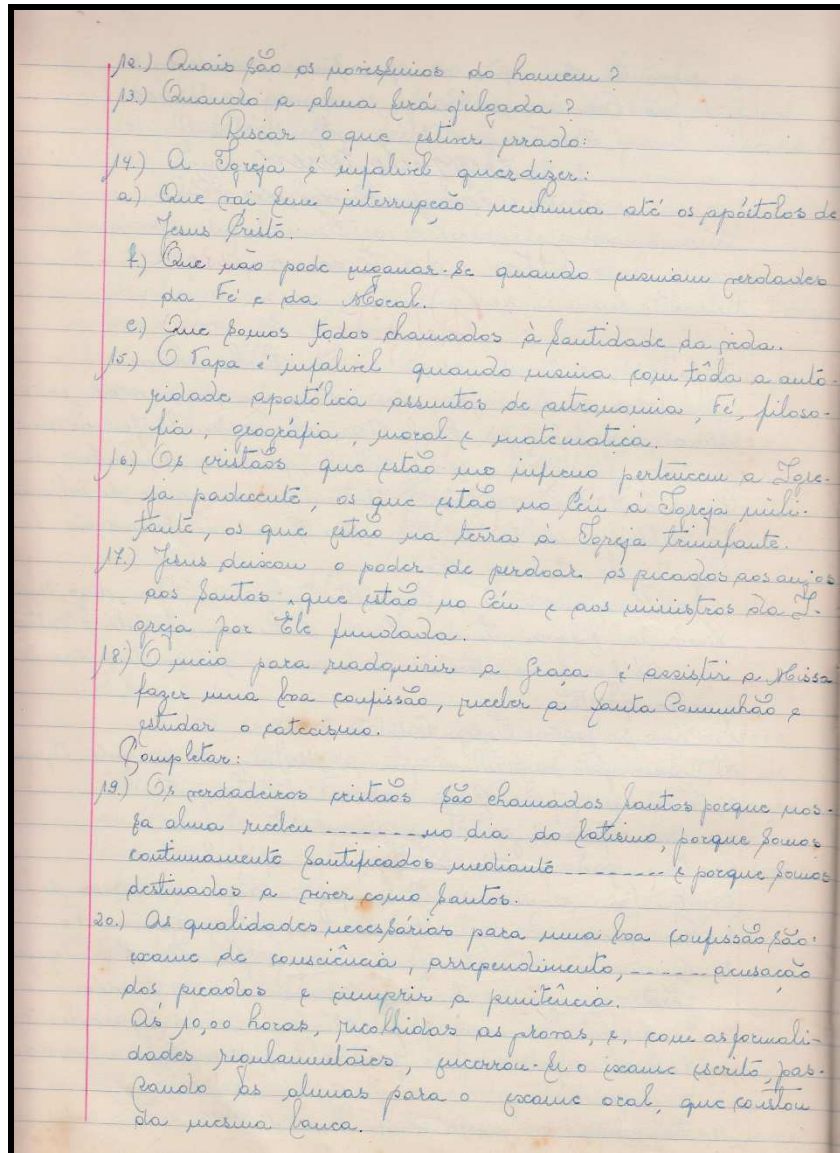 12.) Quais são os novíssimos do homem?
13.) Quando a alma será julgada?
Riscar o que estiver errado:
14.) A Igreja é infalivel quer dizer:
a) Que vai sem interrupção nenhuma até os apóstolos de
Jesus Cristo.
b) Que não pode enganar-se quando ensinam verdades
da Fé e da Moral.
c) Que somos todos chamados à santidade da vida.
15.) O Papa é infalivel quando ensina com tôda a auto-
ridade apostólica assuntos de astronomia, Fé, filoso-
fia, geográfia, moral e matematica.
16.) Os cristãos que estão no inferno pertencem a Igre-
ja padecente, os que estão no Céu à Igreja mili-
tante, os que estão na terra à Igreja triunfante.
17.) Jesus deixou o poder de perdoar os pecados aos anjos
aos Santos que estão no Céu e aos ministros da I-
greja por Êle fundada.
18.) O meio para readquirir a Graça é assistir a Missa
fazer uma boa confissão, receber a Santa Comunhão e
estudar o catecismo.
Completar:
19.) Os verdadeiros cristãos são chamados santos porque nos-
sa alma recebeu ------- no dia do batismo, porque somos
continuamente santificados mediante -------- e porque somos
destinados a viver como santos.
20.) As qualidades necessárias para uma boa confissão são:
exame de consciência, arrependimento, ------ acusação
dos pecados e cumprir a penitência.
Às 10,00 horas, recolhidas as provas, e, com as formali-
dades regulamentares, encerrou-se o exame escrito, pas-
sando as alunas para o exame oral, que constou
da mesma banca.